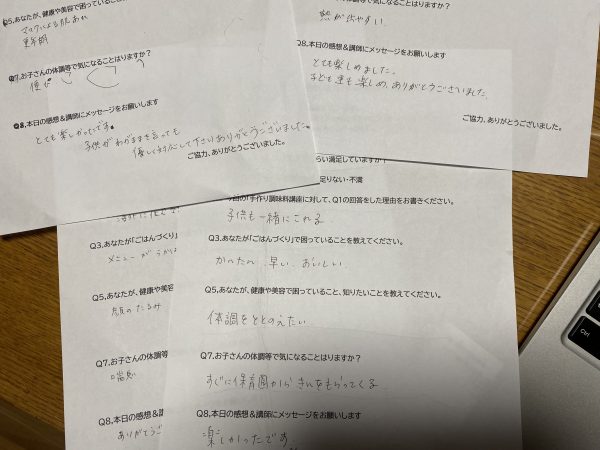 Q5,あなたが、健康や美容で困っていること
マスクによる肌あれ
更年期
Q7,お子さんの体調等で気になることはりますか?
便ぴ
Q8,本日の感想&講師にメッセージをお願いします
とても楽しかったです。
子供がわがままを言っても
優しく対応して下さりありがとうございました。
ご協力、ありがとうございました。
熱が出やすい。
Q8,本日の感想&講師にメッセージをお願いします
とても楽しめました。
子ども達も楽しめ、ありがとうございました。
ご協力、ありがとうございました。
らい満足していますか?
足りない・不満
今回の「手作り調味料講座に対して、Q1の回答をした理由をお書きください。
子供も一緒にこれる
Q3,あなたが「ごはんづくり」で困っていることを教えてください。
かんたん、早い、おいしい
Q5,あなたが、健康や美容で困っていること、知りたいことを教えてください。
体調をととのえたい
Q7,お子さんの体調等で気になることはりますか?
すぐに保育園からきんをもらってくる
Q8,本日の感想&講師にメッセージをお願いします
楽しかったです
Q3,あなたが「ごはんづくり」
メニューがうかば
Q5,あなたが、健康や美容
顔のたるみ
Q7,お子さんの体調等
喘息
Q8,本日の感想&講
ありがとうご
ctrl